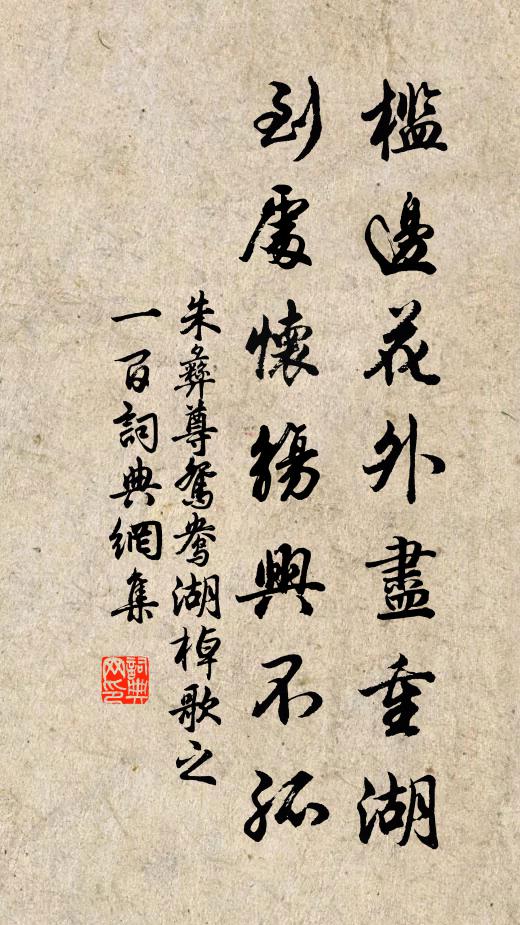 檻邊花外盡重湖
到處懷觴興不孤
朱彝尊鴛鴦湖棹歌之
一百詞典網集
詞典網印